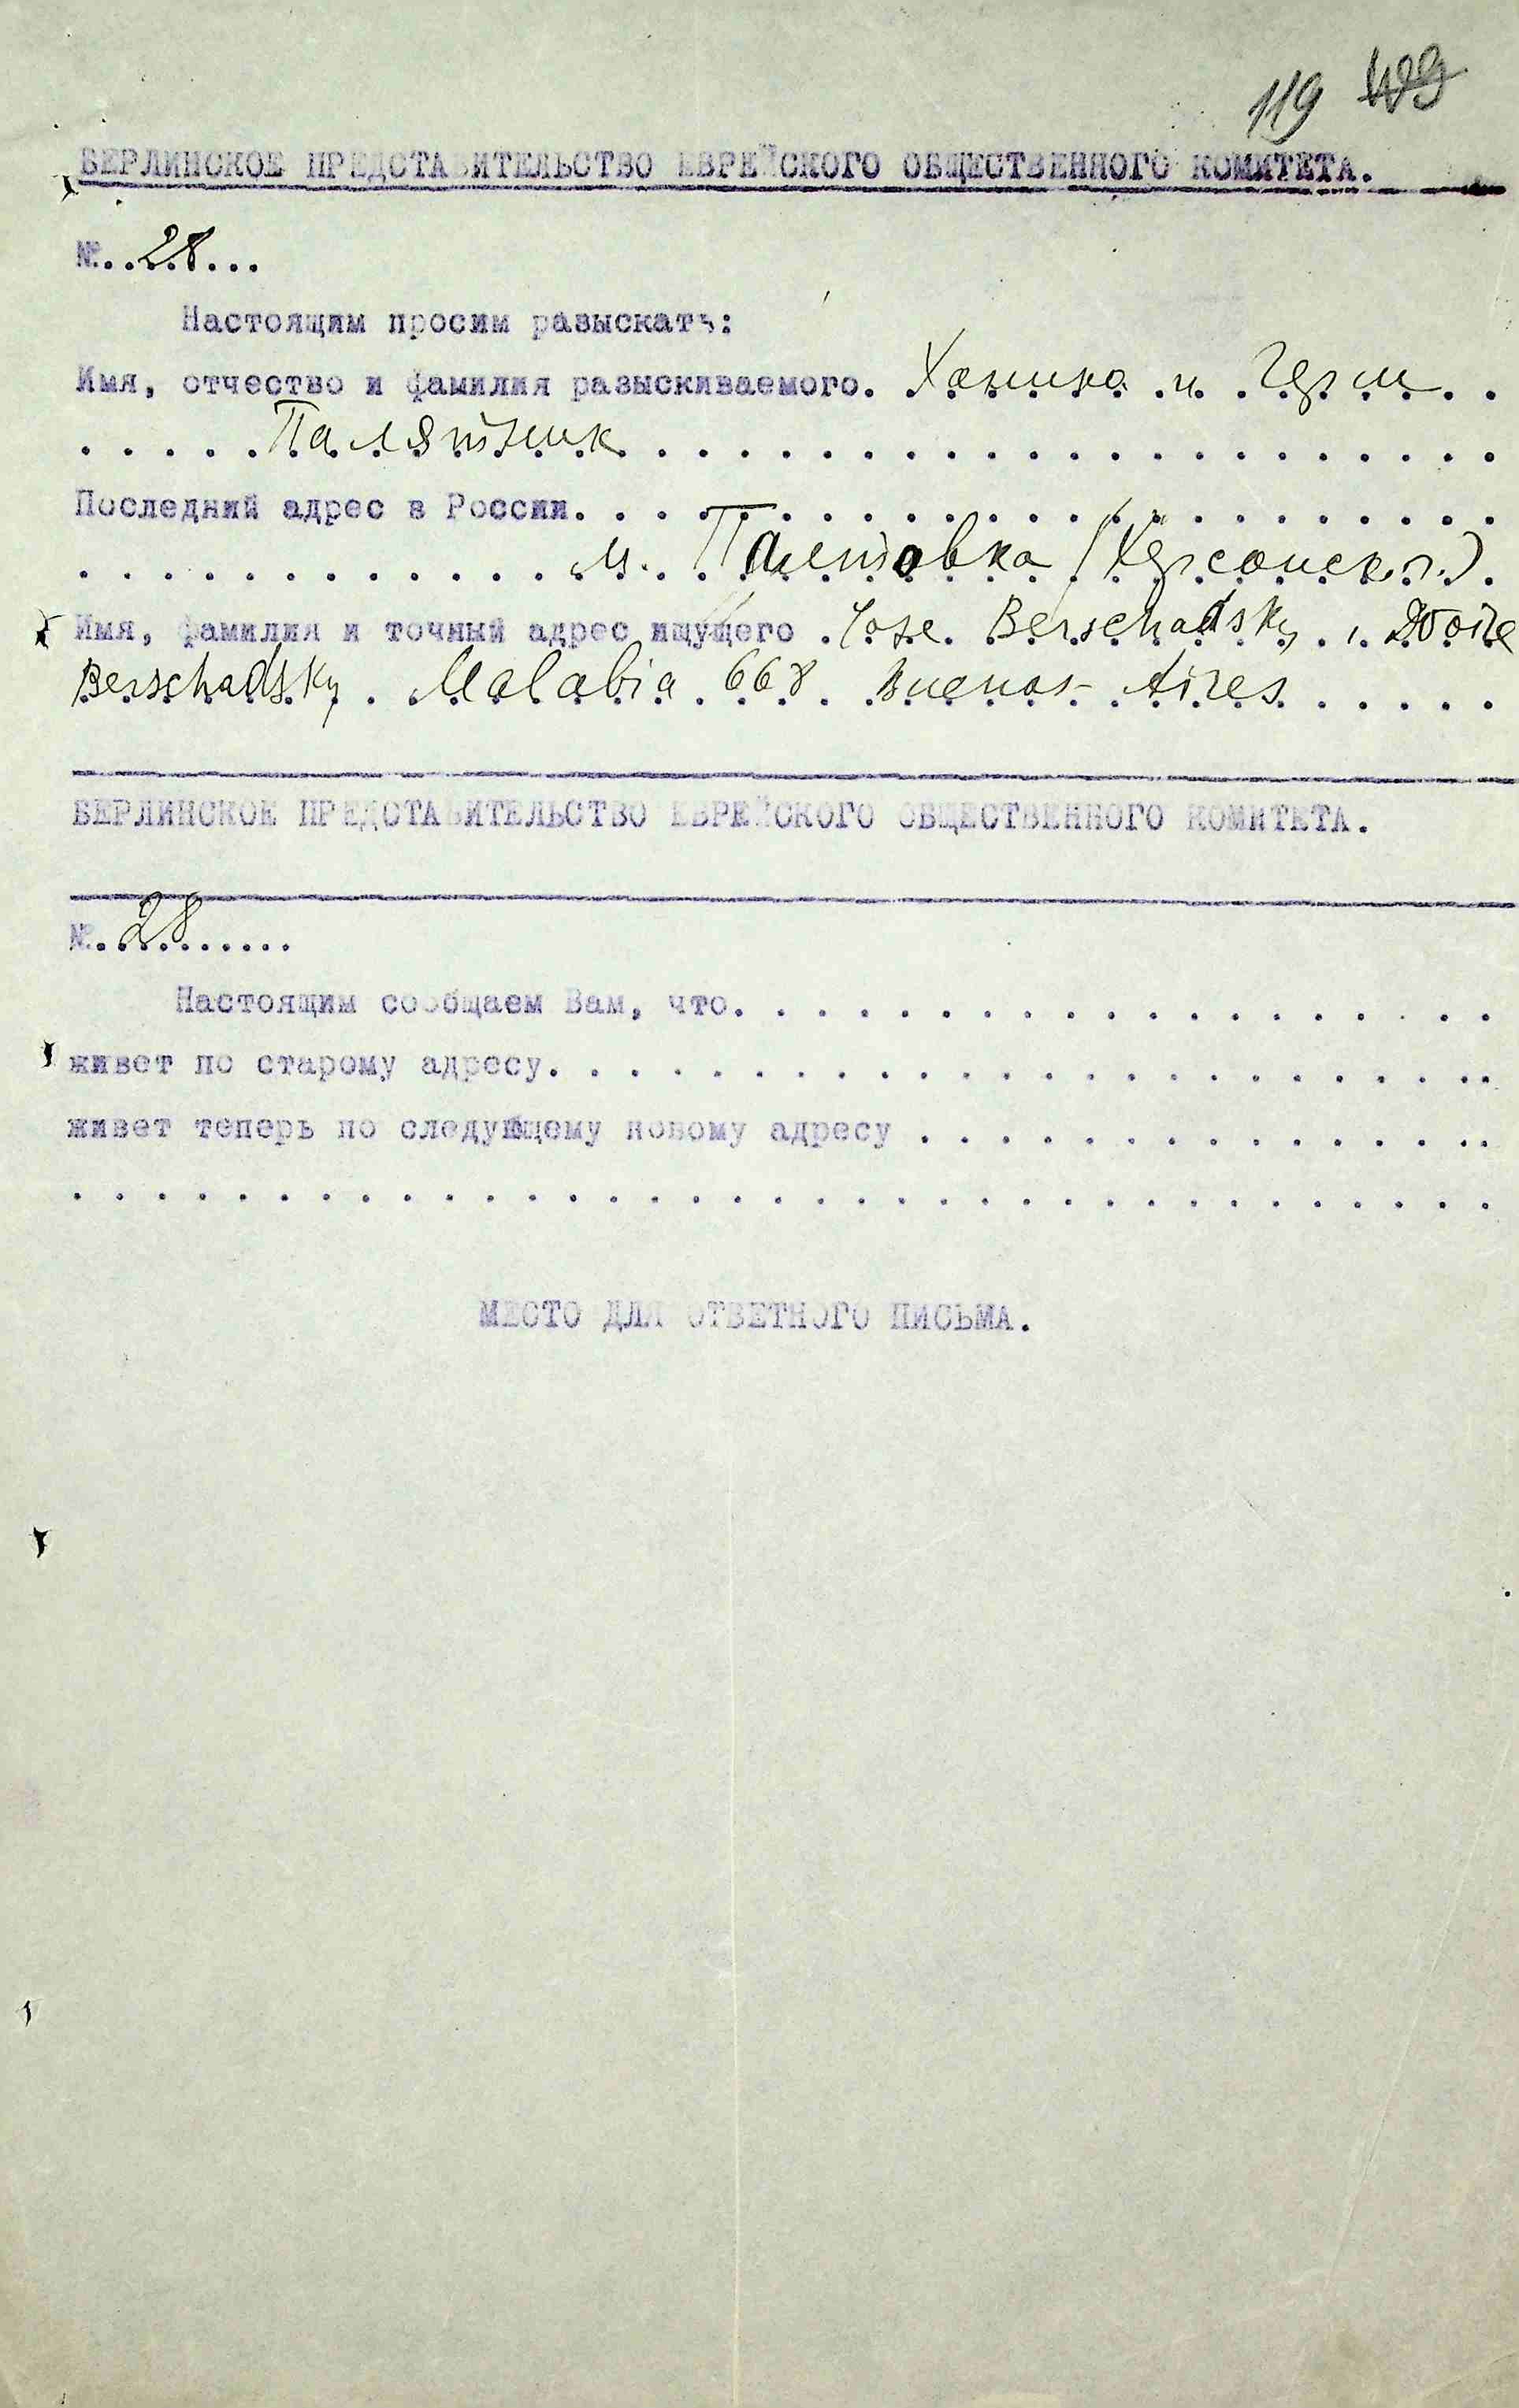 119
БЕРЛИНСКОЕ ПРЕДСТАВИТЕЛЬСТВО ЕВРЕЙСКОГО ОБЩЕСТВЕННОГО КОМИТЕТА.
№..28...
Настоящим просим разыскать:
Имя, отчество и фамилия разыскиваемого. Ханина и Герш
Палятник
Последний адрес в России.
м. Палиовка (Херсонск. г.)
Имя, фамилия и точный адрес ищущего Jose Berschadsky,
Berschadsky. Malabia 668 Buenos-Aires
БЕРЛИНСКОЕ ПРЕДСТАВИТЕЛЬСТВО ЕВРЕЙСКОГО ОБЩЕСТВЕННОГО КОМИТЕТА.
№.28.........
Настоящим сообщаем Вам, что.
живет по старому адресу.
живет теперь по следующему новому адресу
МЕСТО ДЛЯ ОТВЕТНОГО ПИСЬМА.